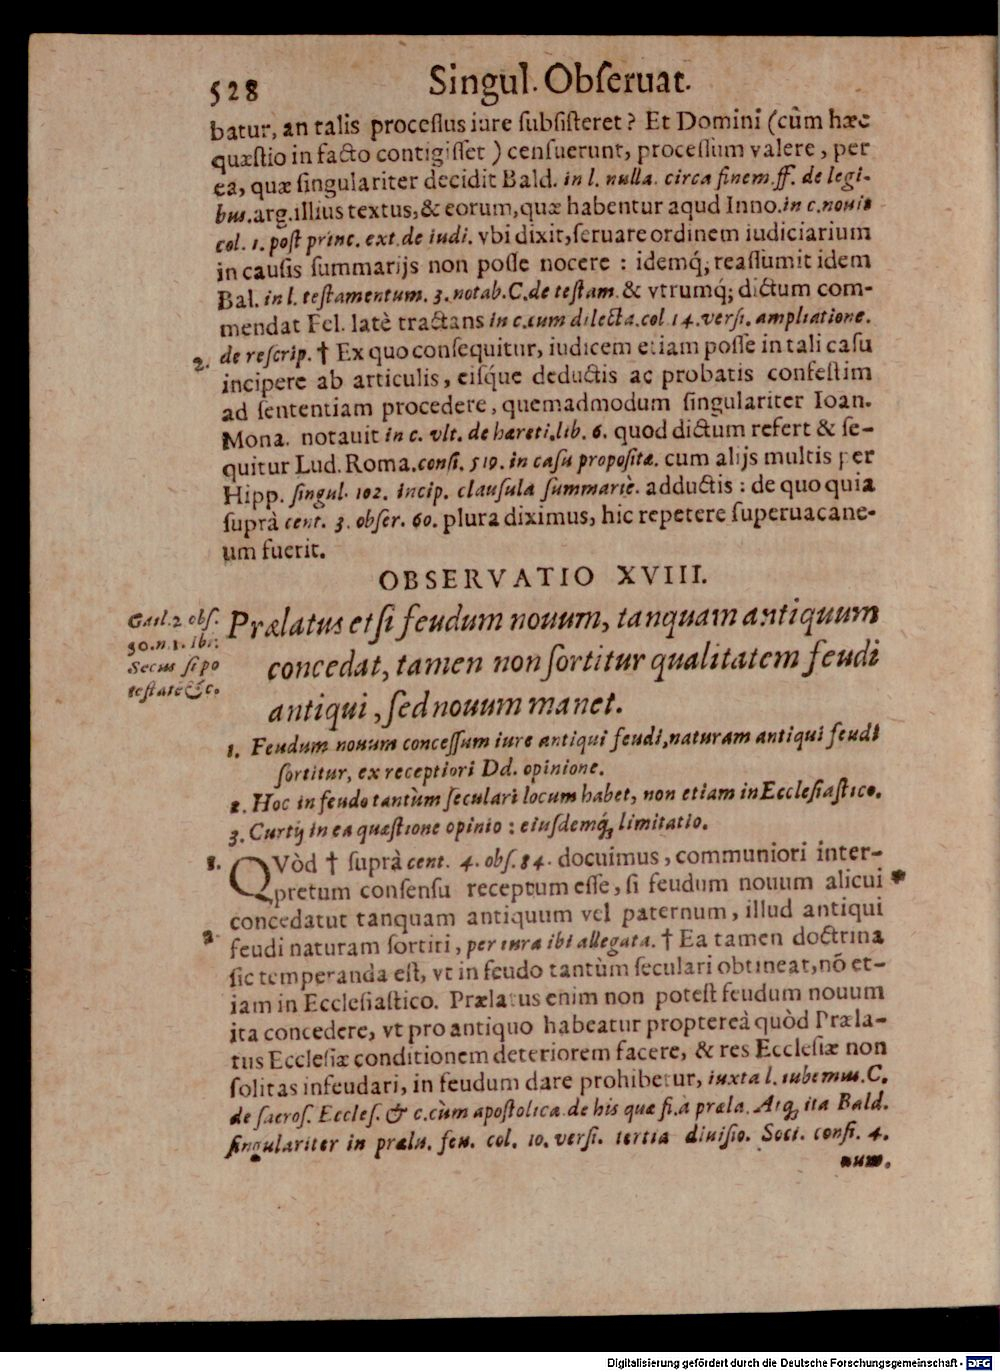 528 Singul. Obſeruat.
batur, an talis proceſſus iure ſubſiſteret? Et Domini (cùm hæc
quæſtio in facto contigiſſet) cenſuerunt, proceſſum valere, per
ea, quæ ſingulariter decidit Bald. in l. nulla. circa finem. ff. de legi-
bus. arg. illius textus, & eorum, quæ habentur aqud Inno. in c. nouit
col. 1. poſt princ. ext. de iudi. vbi dixit, ſeruare ordinem iudiciarium
in cauſis ſummarijs non poſſe nocere : idemq́; reaſſumit idem
Bal. in l. teſtamentum. 3. notab. C. de teſtam. & vtrumq́; dictum com-
mendat Fel. latè tractans in c. cum dilecta. col. 14. verſi. ampliatione.
2. de reſcrip. † Ex quo conſequitur, iudicem etiam poſſe in tali caſu
incipere ab articulis, eiſq́ue deductis ac probatis confeſtim
ad ſententiam procedere, quemadmodum ſingulariter Ioan.
Mona. notauit in c. vlt. de hæreti. lib. 6. quod dictum refert & ſe-
quitur Lud. Roma. conſi. 519. in caſu propoſitæ. cum alijs multis per
Hipp. ſingul. 102. incip. clauſula ſummariè. adductis : de quo quia
ſuprà cent. 3. obſer. 60. plura diximus, hic repetere ſuperuacane-
um fuerit.
OBSERVATIO XVIII.
Gail. 2 obſ.
30. n. 1. ibi:
Secus ſi po
teſtate &c.
Prælatus etſi feudum nouum, tanquam antiquum
concedat, tamen non ſortitur qualitatem feudi
antiqui, ſed nouum manet.
1. Feudum nouum conceſſum iure antiqui feudi, naturam antiqui feudi
ſortitur, ex receptiori Dd. opinione.
2. Hoc in feudo tantùm ſeculari locum habet, non etiam in Eccleſiaſtico.
3. Curtij in ea quæſtione opinio : eiuſdemq́; limitatio.
QVòd † ſuprà cent. 4. obſ. 84. docuimus, communiori inter-
pretum conſenſu receptum eſſe, ſi feudum nouum alicui
concedatut tanquam antiquum vel paternum, illud antiqui
2. feudi naturam ſortiri, per iura ibi allegata. † Ea tamen doctrina
ſic temperanda eſt, vt in feudo tantùm ſeculari obtineat, nō et-
iam in Eccleſiaſtico. Prælatus enim non poteſt feudum nouum
ita concedere, vt pro antiquo habeatur proptereà quòd Præla-
tus Eccleſiæ conditionem deteriorem facere, & res Eccleſiæ non
ſolitas infeudari, in feudum dare prohibetur, iuxta l. iubemus. C.
de ſacroſ. Eccleſ. & c. cùm apoſtolica. de his quæ fi. à præla. Atq; ita Bald.
ſingulariter in prælu. feu. col. 10. verſi. tertia diuiſio. Soci. conſi. 4.
num.
Digitalisierung gefördert durch die Deutsche Forschungsgemeinschaft - DFG